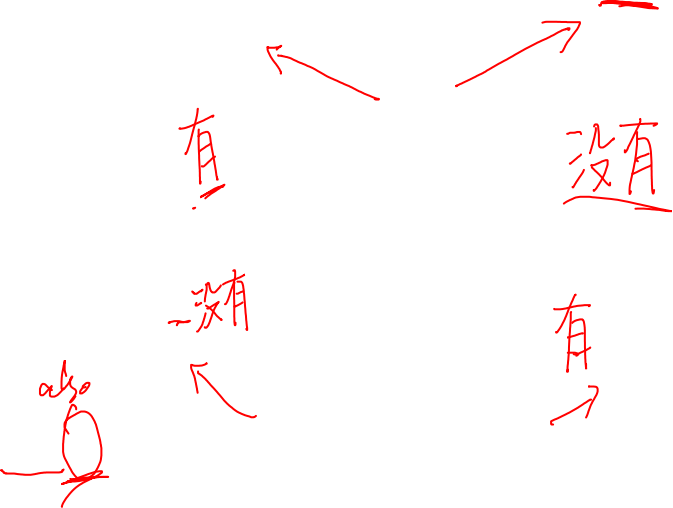 有 没有
没有 有
also